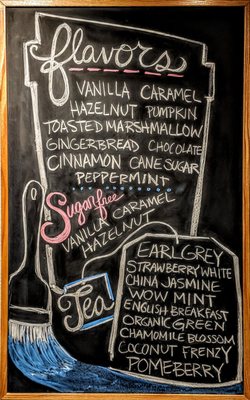 flavors
VANILLA CARAMEL
HAZELNUT PUMPKIN
TOASTED MARSHMALLOW
GINGERBREAD CHOCOLATE
CINNAMON CANE SUGAR
PEPPERMINT
Sugar free
VANILLA CARAMEL
HAZELNUT
Tea
EARL GREY
STRAWBERRY WHITE
CHINA JASMINE
WOW MINT
ENGLISH BREAKFAST
ORGANIC GREEN
CHAMOMILE BLOSSOM
COCONUT FRENZY
POMEBERRY